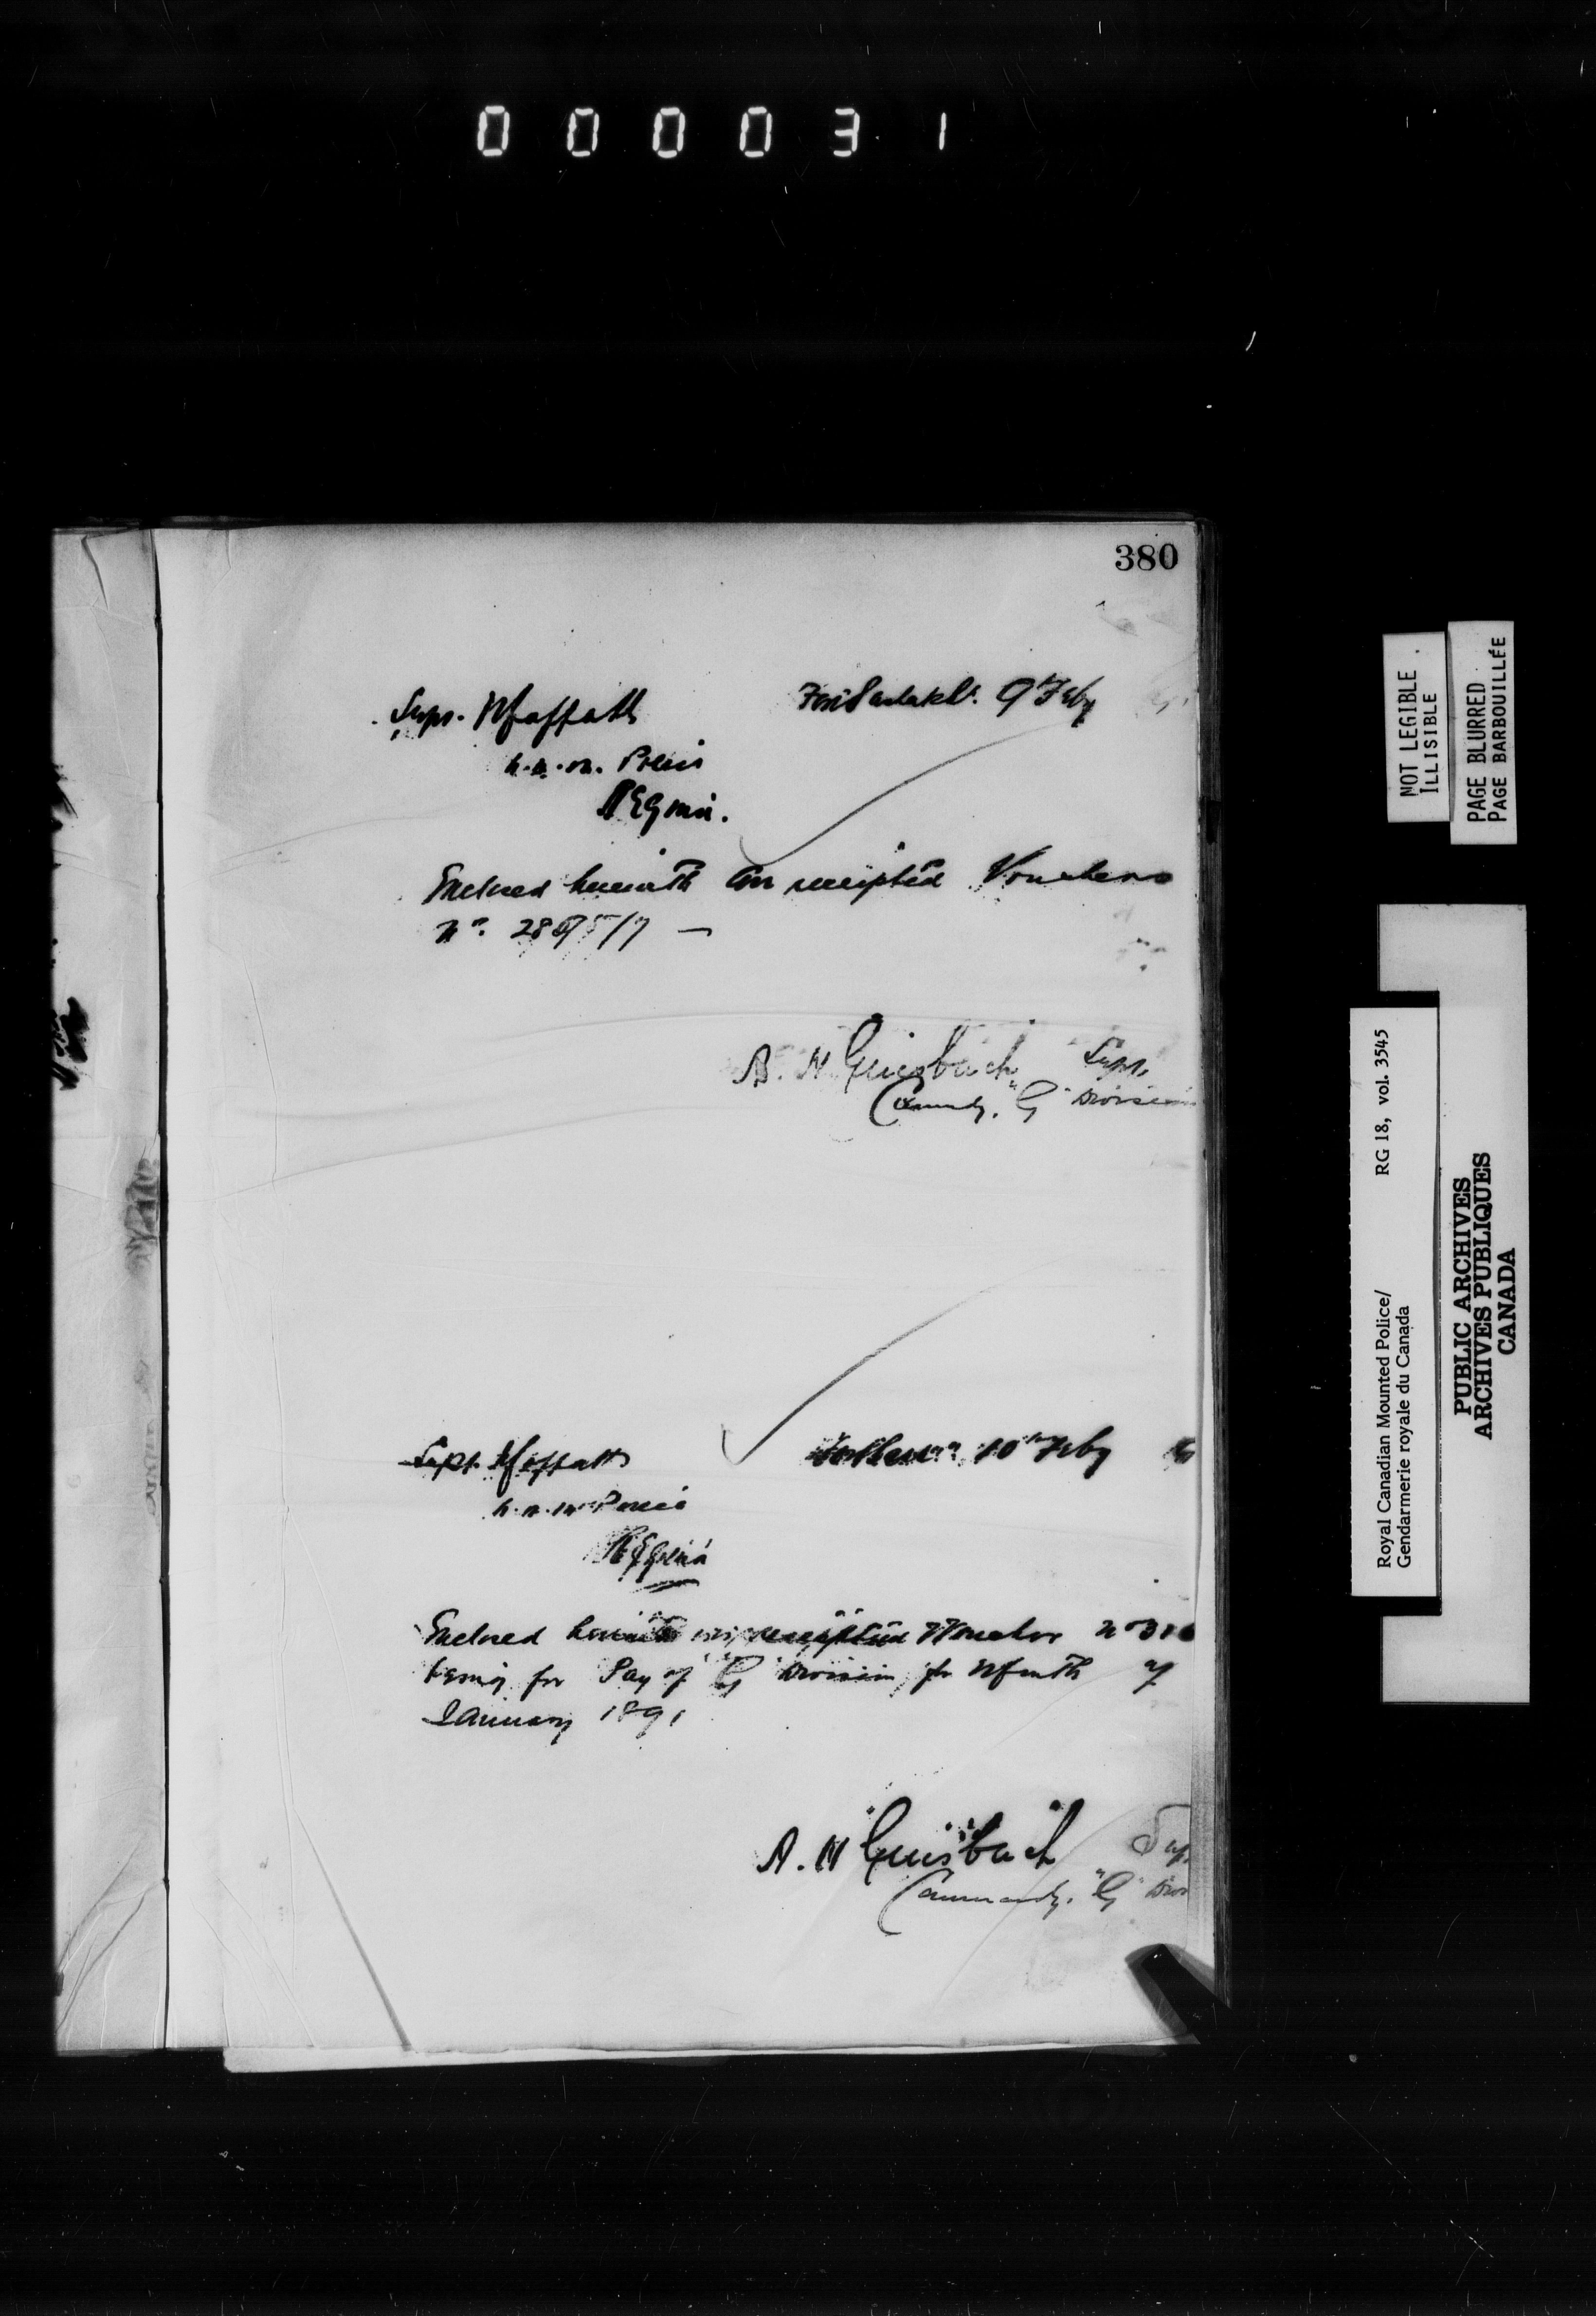 000031
380
Supt. Moffatt
Fort Saskt. 9 Feby
N.W.M. Police
Regina.
Enclosed herewith are receipted Vouchers
No. 
A. H. Griesbach Supt.
Commdg. "G" Division
Supt. Moffatt
10th Feby
N.W.M Police
Regina
Enclosed herewith receipted Voucher No
being for Pay of "G" Division for Month of
January 1891
A. H Griesbach Sup
Commandg. "G" Divi
NOT LEGIBLE
ILLISIBLE
PAGE BLURRED
PAGE BARBOUILLÉE
Royal Canadian Mounted Police/ RG 18, vol. 3545
Gendarmerie royale du Canada
PUBLIC ARCHIVES
ARCHIVES PUBLIQUES
CANADA